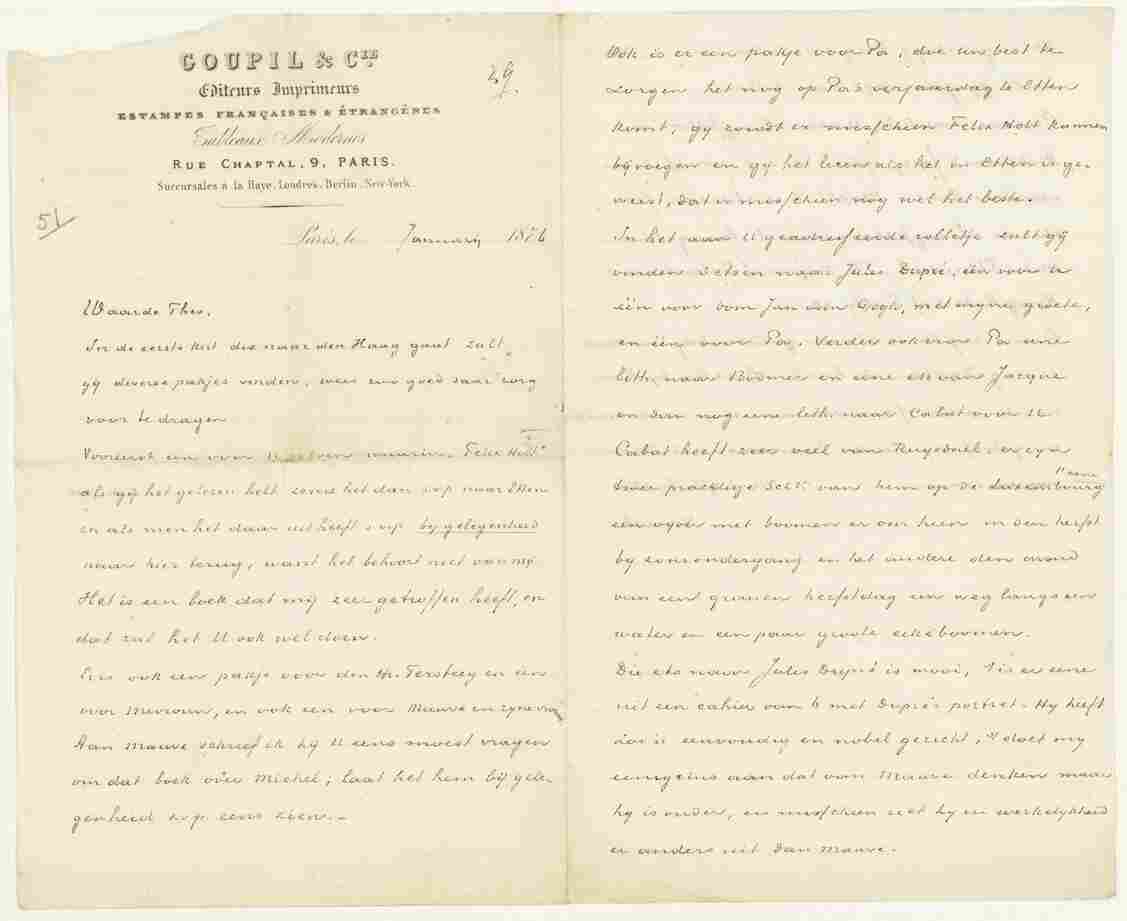 GOUPIL & CIE
Editeurs Imprimeurs
ESTAMPES FRANÇAISES & ÉTRANGÈRES
Tableaux Modernes
RUE CHAPTAL, 9, PARIS.
Succursales à la Haye, Londres, Berlin, New-York.
29
51
Paris, le Januarij 1876
Waarde Theo,
In de eerste kist die naar den Haag gaat zult
gij diverse pakjes vinden, wees zoo goed daar zorg
voor te dragen
Vooreerst een voor U waarin „Felix Holt"
als gij het gelezen hebt zend het dan s.v.p. naar Etten
en als men het daar uit heeft s.v.p. bij gelegenheid
naar hier terug, want het behoort niet aan mij.
Het is een boek dat mij zeer getroffen heeft, en
dat zal het U ook wel doen.
Er is ook een pakje voor den Hr. Tersteeg en een
voor Mevrouw, en ook een voor Mauve en zijne vrouw
Aan Mauve schreef ik hij U eens moest vragen
om dat boek over Michel; laat het hem bij gele-
genheid s.v.p. eens zien.
Ook is er een pakje voor Pa, doe uw best te
zorgen het nog op Pa's verjaardag te Etten
komt, gij zoudt er misschien Felix Holt kunnen
bijvoegen en gij het lezen als het in Etten is ge-
weest, dat is misschien nog wel het beste.
In het aan U geadresseerde rolletje zult gij
vinden 3 etsen naar Jules Dupré, een voor U
één voor oom Jan van Gogh, met mijne groete,
en één voor Pa. Verder ook voor Pa eene
lith. naar Bodmer en eene ets van Jacque
en dan nog eene lith. naar Cabat voor U
Cabat heeft zeer veel van Ruysdael, er zijn
twee prachtige schn. van hem op de Luxembourg
"eene
een vijver met boomen er om heen in den herfst
bij zonsondergang en het andere den avond
van een grauwen herfstdag een weg langs een
water en een paar groote eikeboomen.
Die ets naar Jules Dupré is mooi, 't is er eene
uit een cahier van 6 met Dupré's portret. Hij heeft
zoo'n eenvoudig en nobel gezicht, 't doet mij
eenigzins aan dat van Mauve denken maar
hij is ouder, en misschien ziet hij er in werkelijkheid
er anders uit dan Mauve.